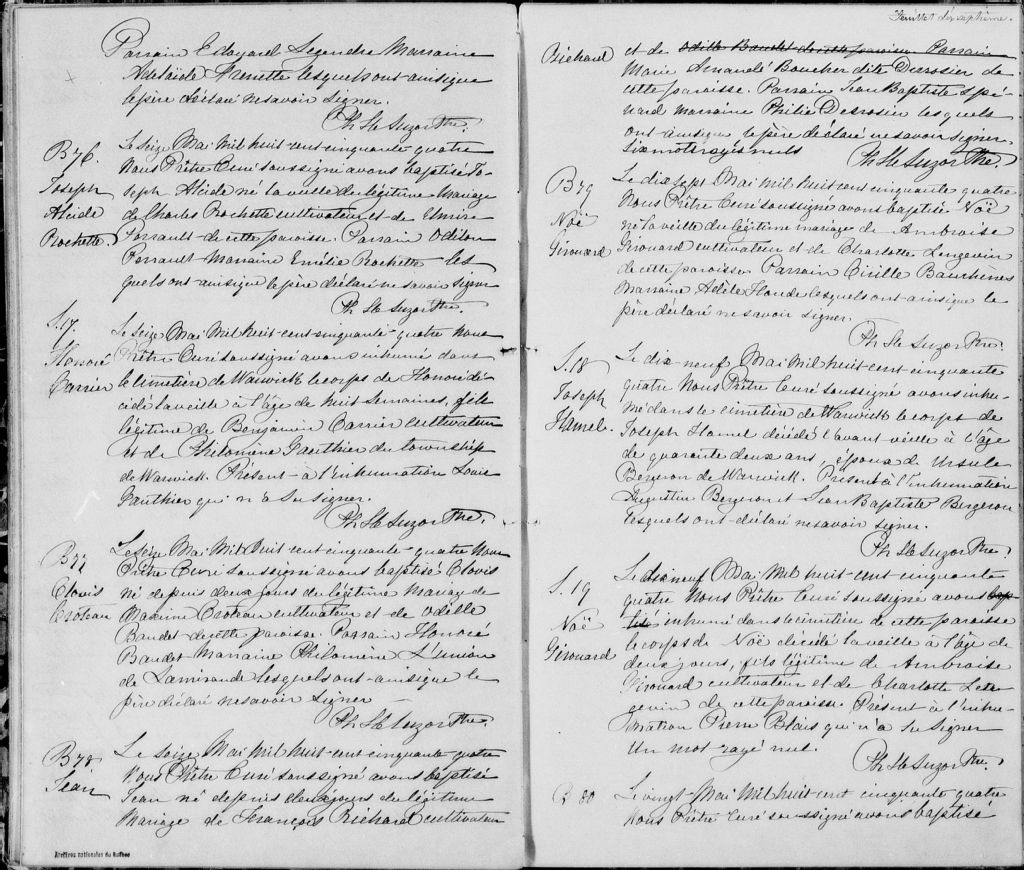 Parrain Edouard Legendre Marraine
Adelaïde Frenette lesquels ont ainsi que
le père déclaré ne savoir signer.
Ph. H. Suzor Ptre.
B 76.
Joseph
Alcide
Rochette.
Le seize Mai Mil huit-cent-cinquante-quatre
Nous Prêtre Curé soussigné avons baptisé Jo-
seph Alcide né la veille du légitime Mariage
de Charles Rochette cultivateur et de Elmire
Perrault de cette paroisse. Parrain Odilon
Perrault Marraine Emélie Rochette les
quels ont ainsi que le père déclaré ne savoir signer
Ph. H. Suzor Ptre.
S. 17
Honoré
Carrier
Le seize Mai Mil huit-cent-cinquante-quatre Nous
Prêtre Curé soussigné avons inhumé dans
le cimetière de Warwick le corps de Honoré dé-
cédé la veille à l'âge de huit semaines, fils
légitime de Benjamin Carrier cultivateur
et de Philomène Gauthier du township
de Warwick. Présent à l'inhumation Louis
Gauthier qui n'a su signer.
Ph. H. Suzor Ptre.
B 77
Clovis
Croteau
Le seize Mai Mil huit cent cinquante-quatre Nous
Prêtre Curé soussigné avons baptisé Clovis
né depuis deux jours du légitime mariage de
Croteau cultivateur et de Odille
Baudet de cette paroisse. Parrain Honoré
Baudet Marraine Philomène
de Lamirande lesquels ont ainsi que le
père déclaré ne savoir signer
Ph. H. Suzor Ptre
B 78
Jean
Le seize Mai Mil huit-cent-cinquante quatre
Nous Prêtre Curé soussigné avons baptisé
Jean né depuis deux jours du légitime
Mariage de François Richard cultivateur
Archives nationales du Québec
Feuillet dix septième.
Richard
et de Odille Baudet de cette paroisse Parrain
Marie Amande Boucher dite Derosier de
cette paroisse. Parrain Jean Baptiste Spé-
nard marraine Philie Desrosier lesquels
ont ainsi que le père déclaré ne savoir signer.
Six mots rayés nuls
Ph. H. Suzor Ptre.
B 79
Noë
Girouard
Le dix sept Mai Mil huit cent cinquante quatre
Nous Prêtre Curé soussigné avons baptisé Noë
né la veille du légitime mariage de Ambroise
Girouard cultivateur et de Charlotte Lengevin
de cette paroisse Parrain Cirille Bauchenes
Marraine Adèle Houde lesquels ont ainsi que le
père déclaré ne savoir signer.
Ph. H. Suzor Ptre.
S. 18
Joseph
Hamel.
Le dix-neuf Mai Mil huit-cent cinquante
quatre Nous Prêtre Curé soussigné avons inhu-
mé dans le cimetière de Warwick le corps de
Joseph Hamel décédé l'avant veille à l'âge
de quarante deux ans, époux de Ursule
Bergeron de Warwick. Présent à l'inhumation
Augustin Bergeron et Jean Baptiste Bergeron
lesquels ont déclaré ne savoir signer.
Ph. H. Suzor Ptre
S. 19
Noë
Girouard
Le dix neuf Mai Mil huit-cent cinquante
quatre Nous Prêtre Curé soussigné avons bap-
tisé inhumé dans le cimetière de cette paroisse
le corps de Noë décédé la veille à l'âge de
deux jours, fils légitime de Ambroise
Girouard cultivateur et de Charlotte Len-
gevin de cette paroisse Présent à l'inhu-
mation Pierre Blais qui n'a su signer
Un mot rayé nul.
Ph. H. Suzor Ptre.
B 80
Le vingt Mai Mil huit cent cinquante quatre
Nous Prêtre Curé soussigné avons baptisé